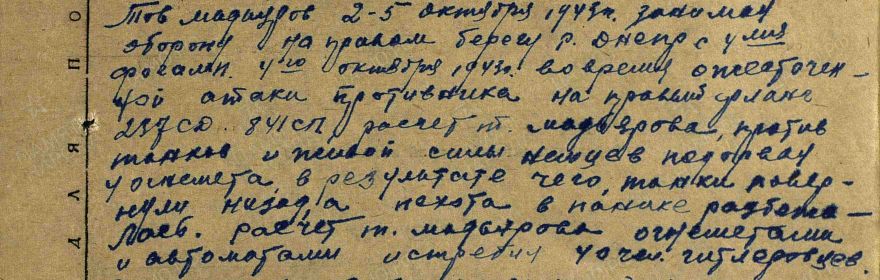 Тов Мадьяров 2-5 октября 1943г. занимал
оборону на правом берегу р. Днепр с у
4го октября 1943г. во время ожесточен-
ной атаки противника на правый фланг
237СД 841СП, расчет т. Мадьярова, против
танков и живой силы немцев подорвал
4 огнемета, в результате чего, танки повер-
нули назад, а пехота в панике разбежа-
лась. расчет т. Мадьярова огнеметами
и автоматами истребил 40 чел. гитлеровцев.
Д Л Я П О